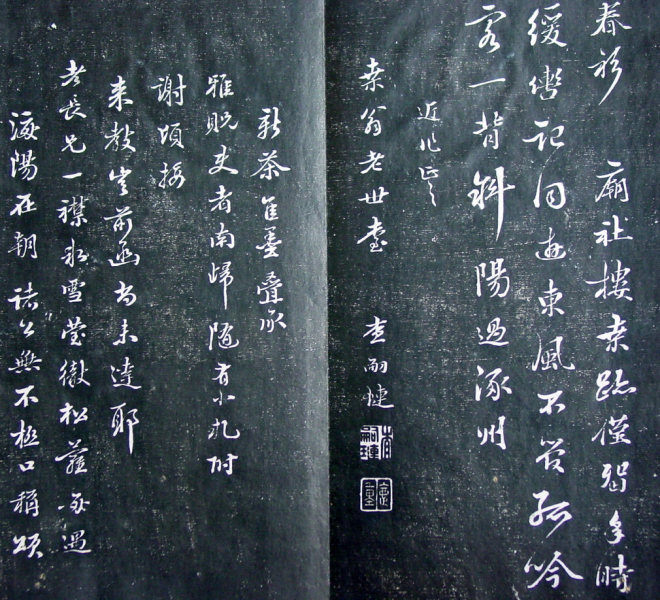 春衫 廟社樓桑跡僅留多時
緩轡記同遊東風不管孤吟
客一背斜陽過涿州
近作正之
桑翁老世臺 查嗣璉
新茶佳墨疊承
雅貺使者南歸隨有小札附
謝頃接
來教豈前函尚未達耶
老長兄一襟冰雪瑩徹松蘿每過
海陽在朝諸公無不極口稱頌